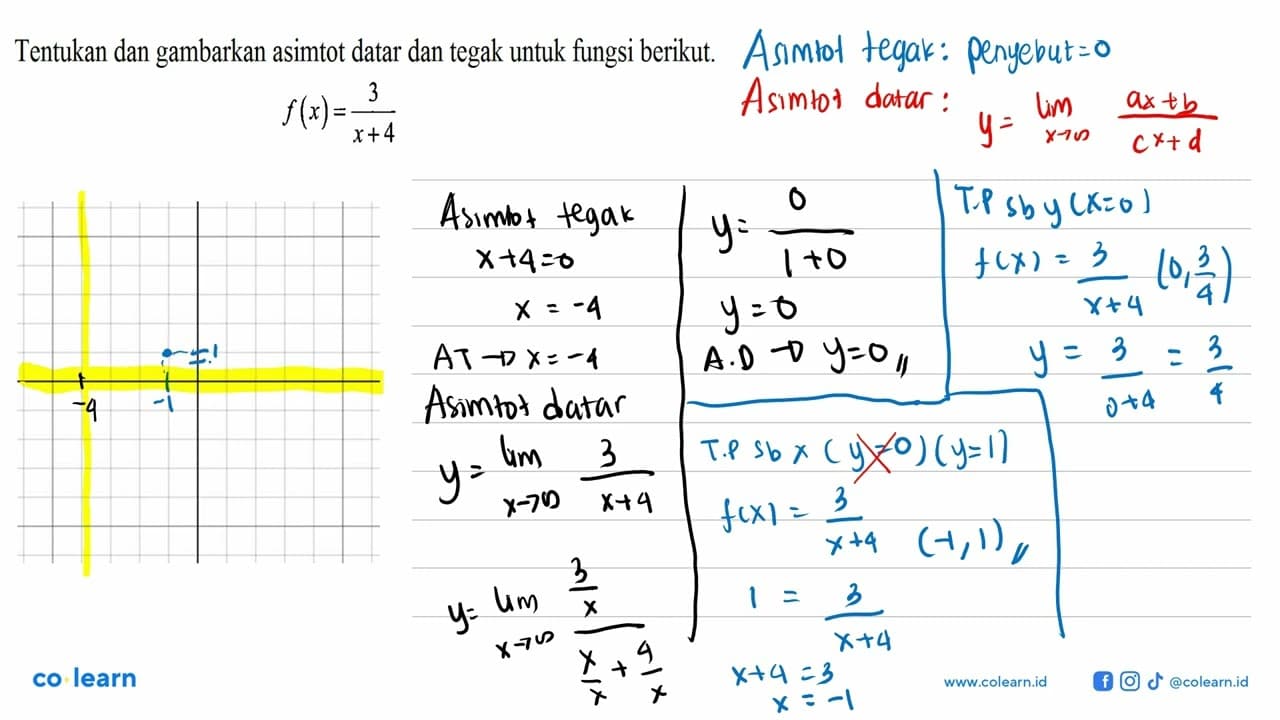 Tentukan dan gambarkan asimtot datar dan tegak untuk fungsi berikut.
f(x) = 3/(x+4)
Asimtot tegak: penyebut=0
Asimtot datar:
y = lim x→∞ (ax+b)/(cx+d)
-4
-1
=1
Asimtot tegak
x+4=0
x = -4
AT → x = -4
Asimtot datar
y = lim x→∞ 3/(x+4)
y= lim x→∞ (3/x)/(x/x + 4/x)
y= 0/(1+0)
y=0
A.D → y=0
T.P sb y (x=0)
f(x) = 3/(x+4) (0, 3/4)
y = 3/(0+4) = 3/4
T.P sb x (y=0) (y=1)
f(x) = 3/(x+4) (-1,1)
1 = 3/(x+4)
x+4 = 3
x = -1
co learn
www.colearn.id
@colearn.id